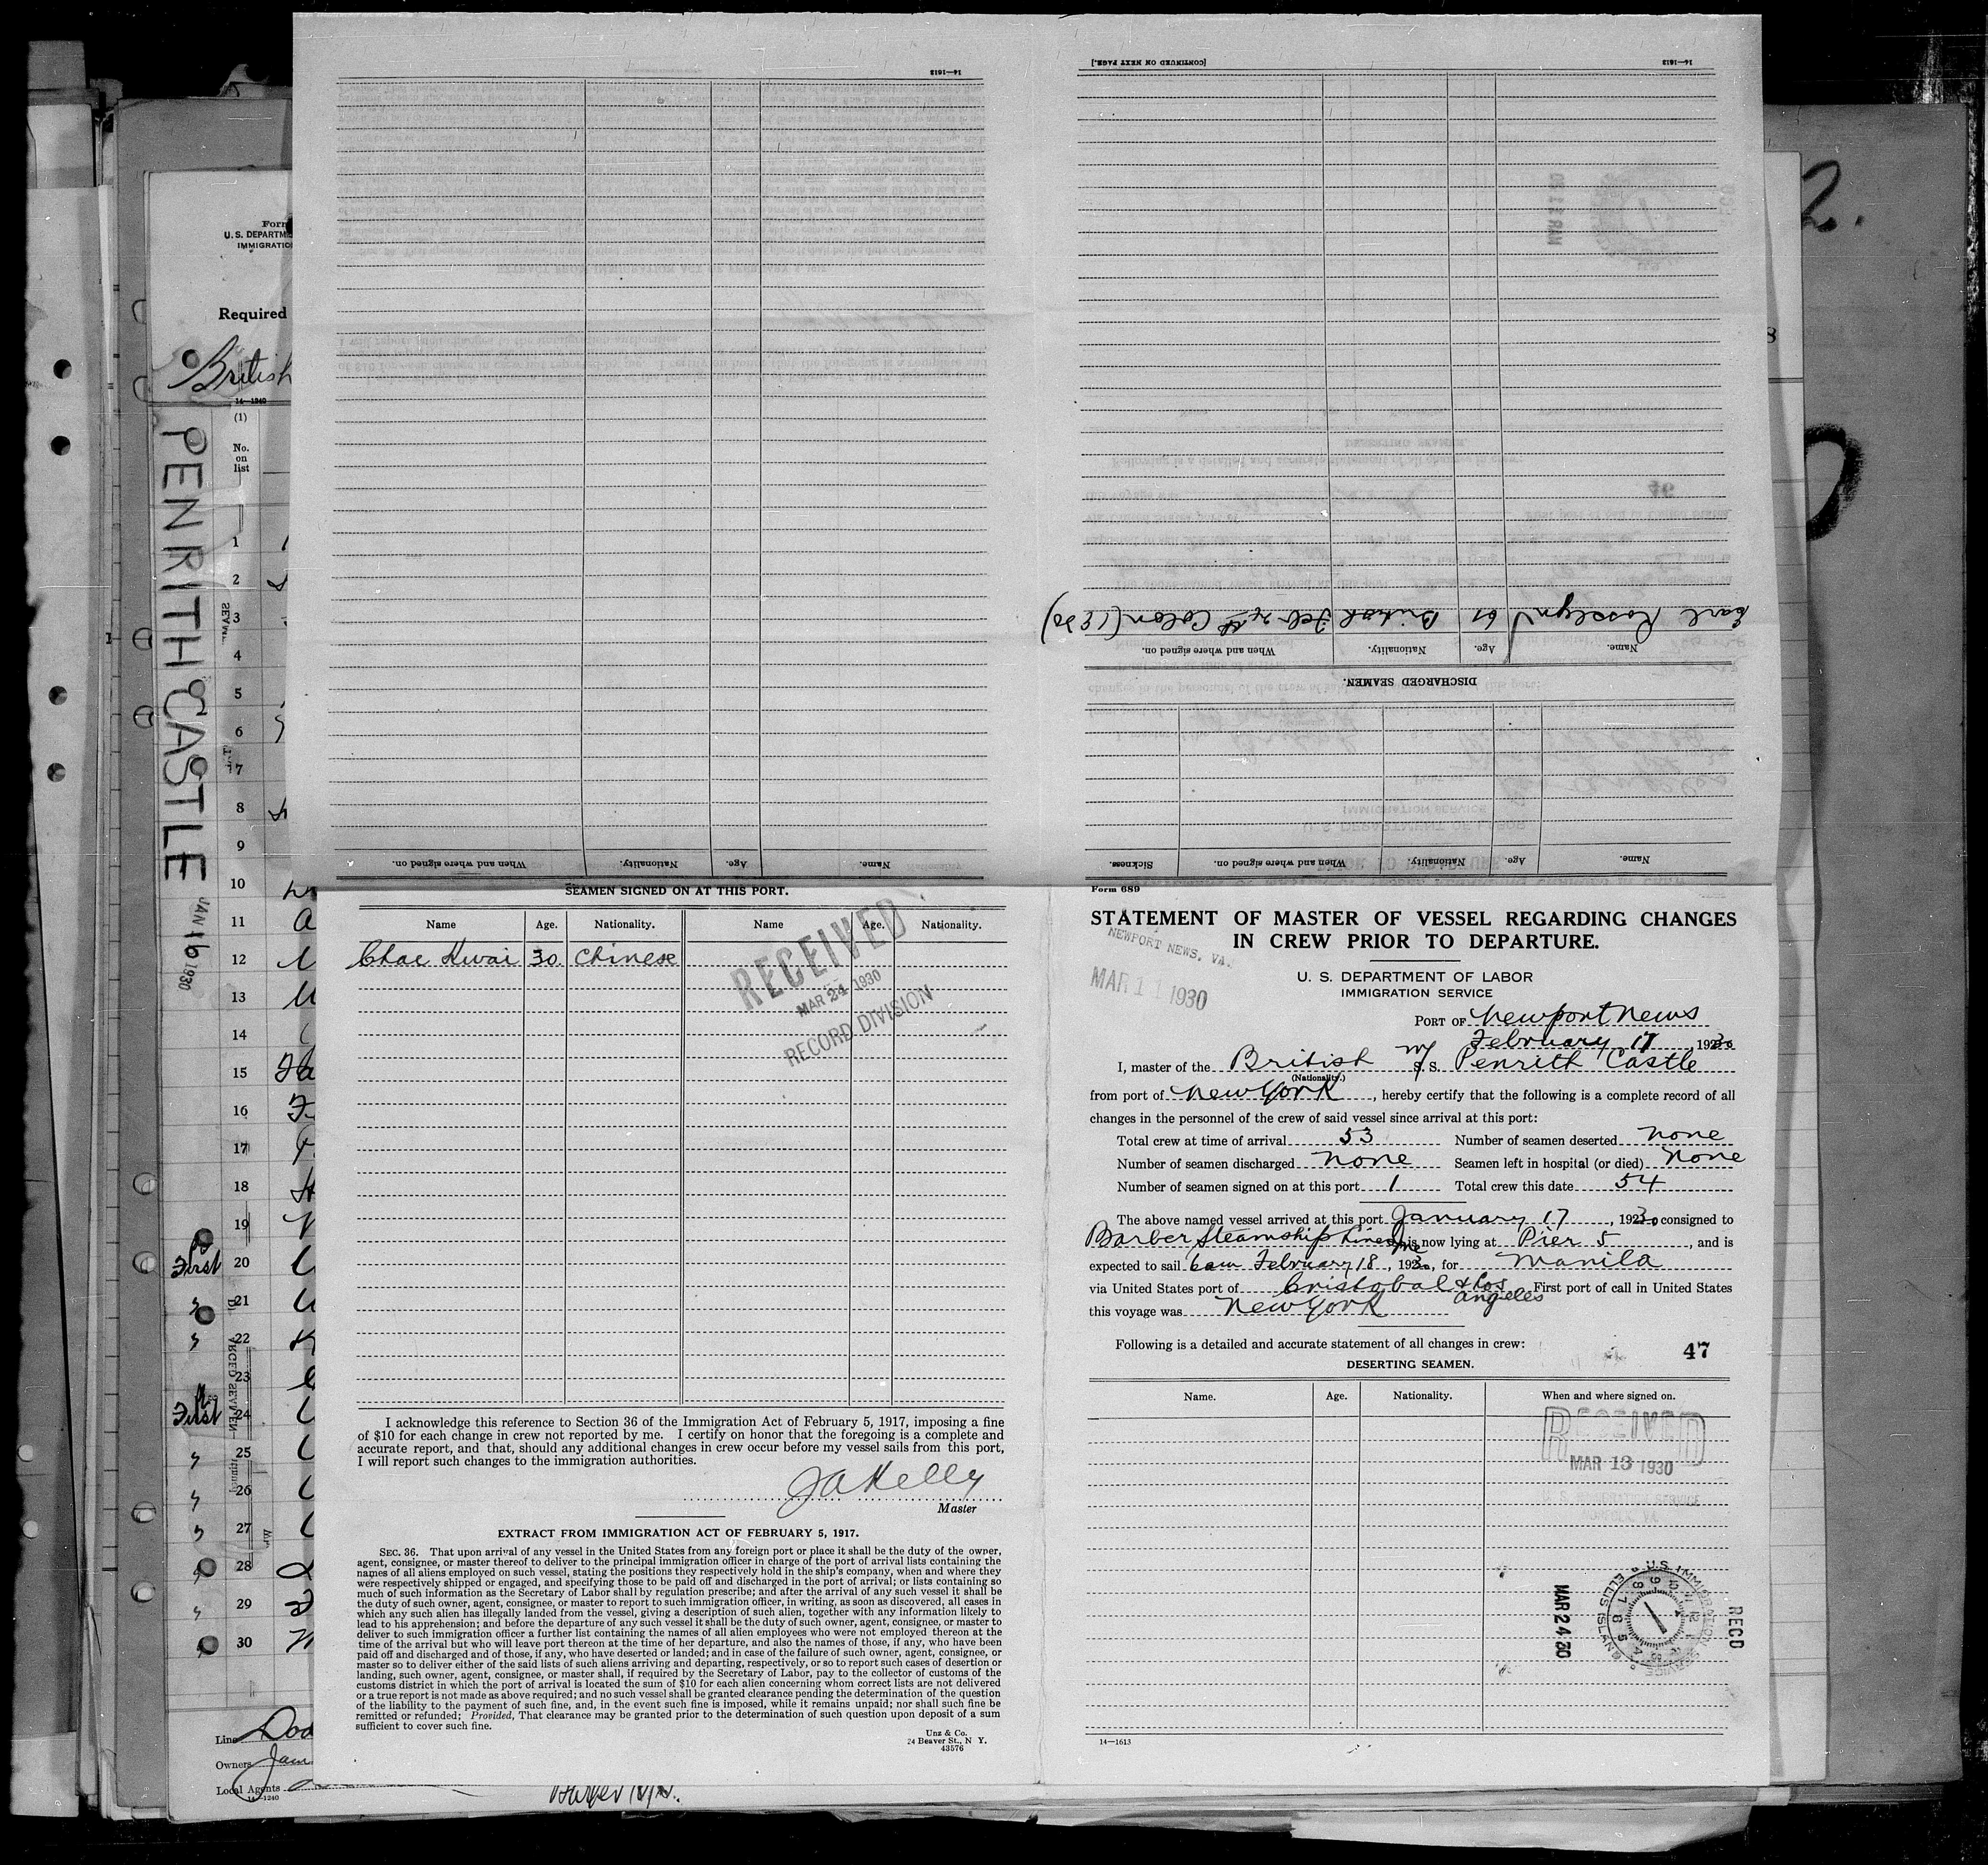 14—1613
[CONTINUED ON NEXT PAGE.]
14—1613
Name.
Age.
Nationality.
When and where signed on.
DISCHARGED SEAMEN.
Name.
Age.
Nationality.
When and where signed on.
Earl Rosslyn
British
Colon (1930)
Name.
Age.
Nationality.
When and where signed on.
Sickness.
Form
U. S. DEPARTM
IMMIGRATIO
Required
British
14—1240
(1)
No.
on
list
PENRITH CASTLE JAN 16 1930
1
2
3
4
5
6
7
8
9
10
11
12
13
14
15
16
17
18
19
First 20
21
22
23
First 24
25
26
27
28
29
30
Line
Owners
Local Agents
14—1240
2.
8
SEAMEN SIGNED ON AT THIS PORT.
Name Age. Nationality. Name Age. Nationality.
Chae Kwai 30 Chinese
RECEIVED
MAR 24 1930
RECORD DIVISION
I acknowledge this reference to Section 36 of the Immigration Act of February 5, 1917, imposing a fine
of $10 for each change in crew not reported by me. I certify on honor that the foregoing is a complete and
accurate report, and that, should any additional changes in crew occur before my vessel sails from this port,
I will report such changes to the immigration authorities.
JA Kelly
Master
EXTRACT FROM IMMIGRATION ACT OF FEBRUARY 5, 1917.
SEC. 36. That upon arrival of any vessel in the United States from any foreign port or place it shall be the duty of the owner,
agent, consignee, or master thereof to deliver to the principal immigration officer in charge of the port of arrival lists containing the
names of all aliens employed on such vessel, stating the positions they respectively hold in the ship's company, when and where they
were respectively shipped or engaged, and specifying those to be paid off and discharged in the port of arrival; or lists containing so
much of such information as the Secretary of Labor shall by regulation prescribe; and after the arrival of any such vessel it shall be
the duty of such owner, agent, consignee, or master to report to such immigration officer, in writing, as soon as discovered, all cases in
which any such alien has illegally landed from the vessel, giving a description of such alien, together with any information likely to
lead to his apprehension; and before the departure of any such vessel it shall be the duty of such owner, agent, consignee, or master to
deliver to such immigration officer a further list containing the names of all alien employees who were not employed thereon at the
time of the arrival but who will leave port thereon at the time of her departure, and also the names of those, if any, who have been
paid off and discharged and of those, if any, who have deserted or landed; and in case of the failure of such owner, agent, consignee, or
master so to deliver either of the said lists of such aliens arriving and departing, respectively, or so to report such cases of desertion or
landing, such owner, agent, consignee, or master shall, if required by the Secretary of Labor, pay to the collector of customs of the
customs district in which the port of arrival is located the sum of $10 for each alien concerning whom correct lists are not delivered
or a true report is not made as above required; and no such vessel shall be granted clearance pending the determination of the question
of the liability to the payment of such fine, and, in the event such fine is imposed, while it remains unpaid; nor shall such fine be
remitted or refunded; Provided, That clearance may be granted prior to the determination of such question upon deposit of a sum
sufficient to cover such fine.
Unz & Co.
24 Beaver St., N Y.
43576
Form 689
STATEMENT OF MASTER OF VESSEL REGARDING CHANGES
IN CREW PRIOR TO DEPARTURE.
NEWPORT NEWS, VA.
MAR 11 1930
U. S. DEPARTMENT OF LABOR
IMMIGRATION SERVICE
PORT OF Newport News
February 17, 1930
I, master of the British M/S. S. Penrith Castle
(Nationality.)
from port of New York, hereby certify that the following is a complete record of all
changes in the personnel of the crew of said vessel since arrival at this port:
Total crew at time of arrival 53 Number of seamen deserted None
Number of seamen discharged None Seamen left in hospital (or died) None
Number of seamen signed on at this port 1 Total crew this date 54
The above named vessel arrived at this port January 17, 1930 consigned to
Barber Steamship Lines Inc is now lying at Pier 5, and is
expected to sail 6am February 18, 1930, for Manila
via United States port of Cristobal & Los Angeles First port of call in United States
this voyage was New York
Following is a detailed and accurate statement of all changes in crew:
47
DESERTING SEAMEN.
Name. Age. Nationality. When and where signed on.
RECEIVED
MAR 13 1930
RECD
MAR 24 30
U.S. IMMIGRATION SERVICE
ELLIS ISLAND
14—1613